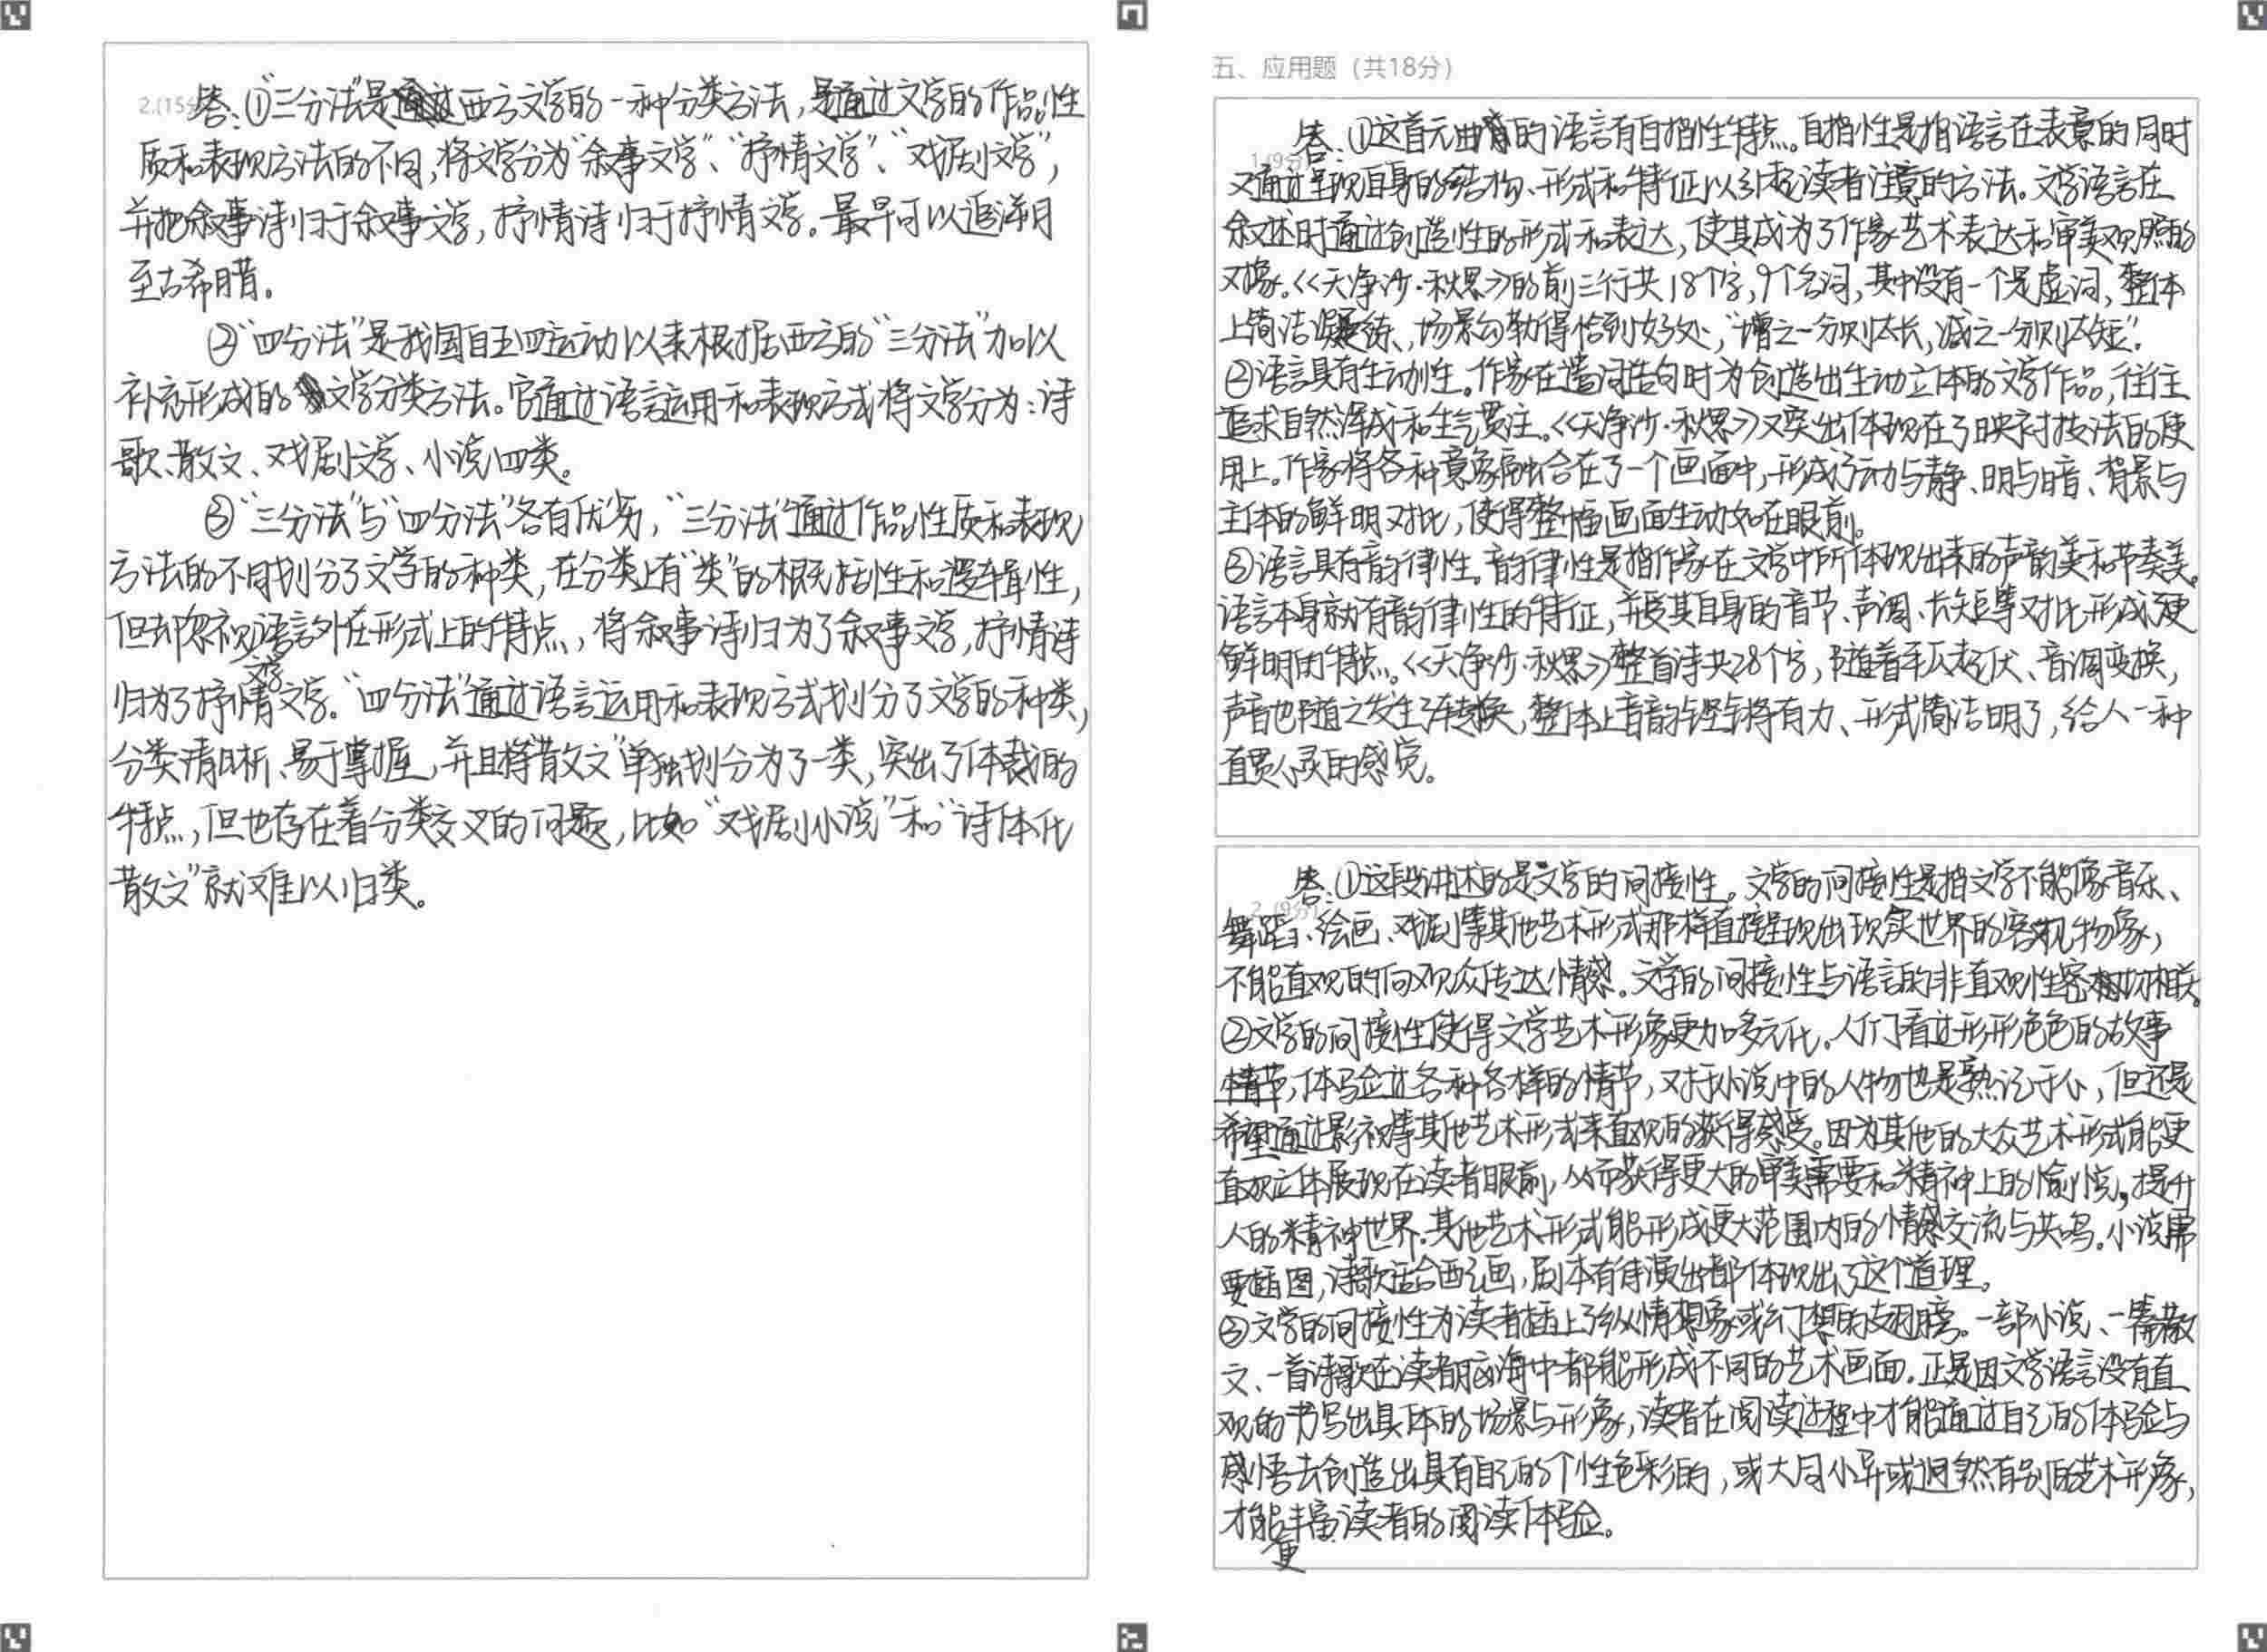 2.(15分
答:①“三分法”是西方文学的一种分类方法,是通过文学的作品性
质和表现方法的不同,将文学分为“叙事文学”、“抒情文学”、“戏剧文学”,
并把叙事诗归于叙事文学,抒情诗归于抒情文学。最早可以追溯
至古希腊。
②“四分法”是我国自五四运动以来根据西方的“三分法”加以
补充形成的文学分类方法。它通过语言运用和表现方式将文学分为:诗
歌、散文、戏剧文学、小说四类。
③“三分法”与“四分法”各有优劣,“三分法”通过作品性质和表现
方法的不同划分了文学的种类,在分类上有“类”的概括性和逻辑性,
但却忽视文学语言外在形式上的特点,将叙事诗归为了叙事文学,抒情诗
归为了抒情文学。“四分法”通过语言运用和表现方式划分了文学的种类,
分类清晰、易于掌握,并且将“散文”单独划分为了一类,突出了体裁的
特点,但也存在着分类交叉的问题,比如“戏剧小说”和“诗体化
散文”就难以归类。
五、应用题(共18分)
1.(9分)
答:①这首元曲的语言有自指性特点。自指性是指语言在表意的同时
又通过呈现自身的结构、形式和特征以引起读者注意的方法。文学语言在
叙述时通过创造性的形式和表达,使其成为了作家艺术表达和审美观照的
对象。《天净沙·秋思》的前三行共18个字,9个名词,其中没有一个是虚词,整体
上简洁凝练、场景勾勒得恰到好处,“增之一分则太长,减之一分则太短”。
②语言具有生动性。作家在遣词造句时为创造出生动立体的文学作品,往往
追求自然浑成和生气贯注。《天净沙·秋思》又突出体现在了映衬技法的使
用上。作家将各种意象融合在了一个画面中,形成了动与静、明与暗、背景与
主体的鲜明对比,使得整幅画面生动如在眼前。
③语言具有音韵律性。音韵律性是指作家在文学中所体现出来的声韵美和节奏美。
语言本身就有韵律性的特征,并使其自身的音节、声调、长短等对比形成更
鲜明的特点。《天净沙·秋思》整首诗共28个字,随着平仄起伏、音调变换,
声音也随之发生了转换,整体上音韵铿锵有力、形式简洁明了,给人一种
直贯心灵的感觉。
2.(9分)
答:①这段讲述的是文学的间接性。文学的间接性是指文学不能像音乐、
舞蹈、绘画、戏剧等其他艺术形式那样直接呈现出现实世界的客观物象,
不能直观的向观众传达情感。文学的间接性与语言的非直观性密切相关。
②文学的间接性使得文学艺术形象更加多元化。人们看过形形色色的故事
情节,体验过各种各样的情节,对于小说中的人物也是熟记于心,但还是
希望通过影视等其他艺术形式来直观的获得感受。因为其他的大众艺术形式能更
直观立体展现在读者眼前,从而获得更大的审美需要和精神上的愉悦,提升
人的精神世界。其他艺术形式能形成更大范围内的情感交流与共鸣。小说需
要插图,诗歌适合配画,剧本有待演出都体现出了这个道理。
③文学的间接性为读者插上了纵情想象或幻想的翅膀。一部小说、一篇散
文、一首诗歌在读者脑海中都能形成不同的艺术画面。正是因文学语言没有直
观的书写出具体的场景与形象,读者在阅读过程中才能通过自己的体验与
感悟去创造出具有自己的个性色彩的,或大同小异或迥然有别的艺术形象,
才能更丰富读者的阅读体验。